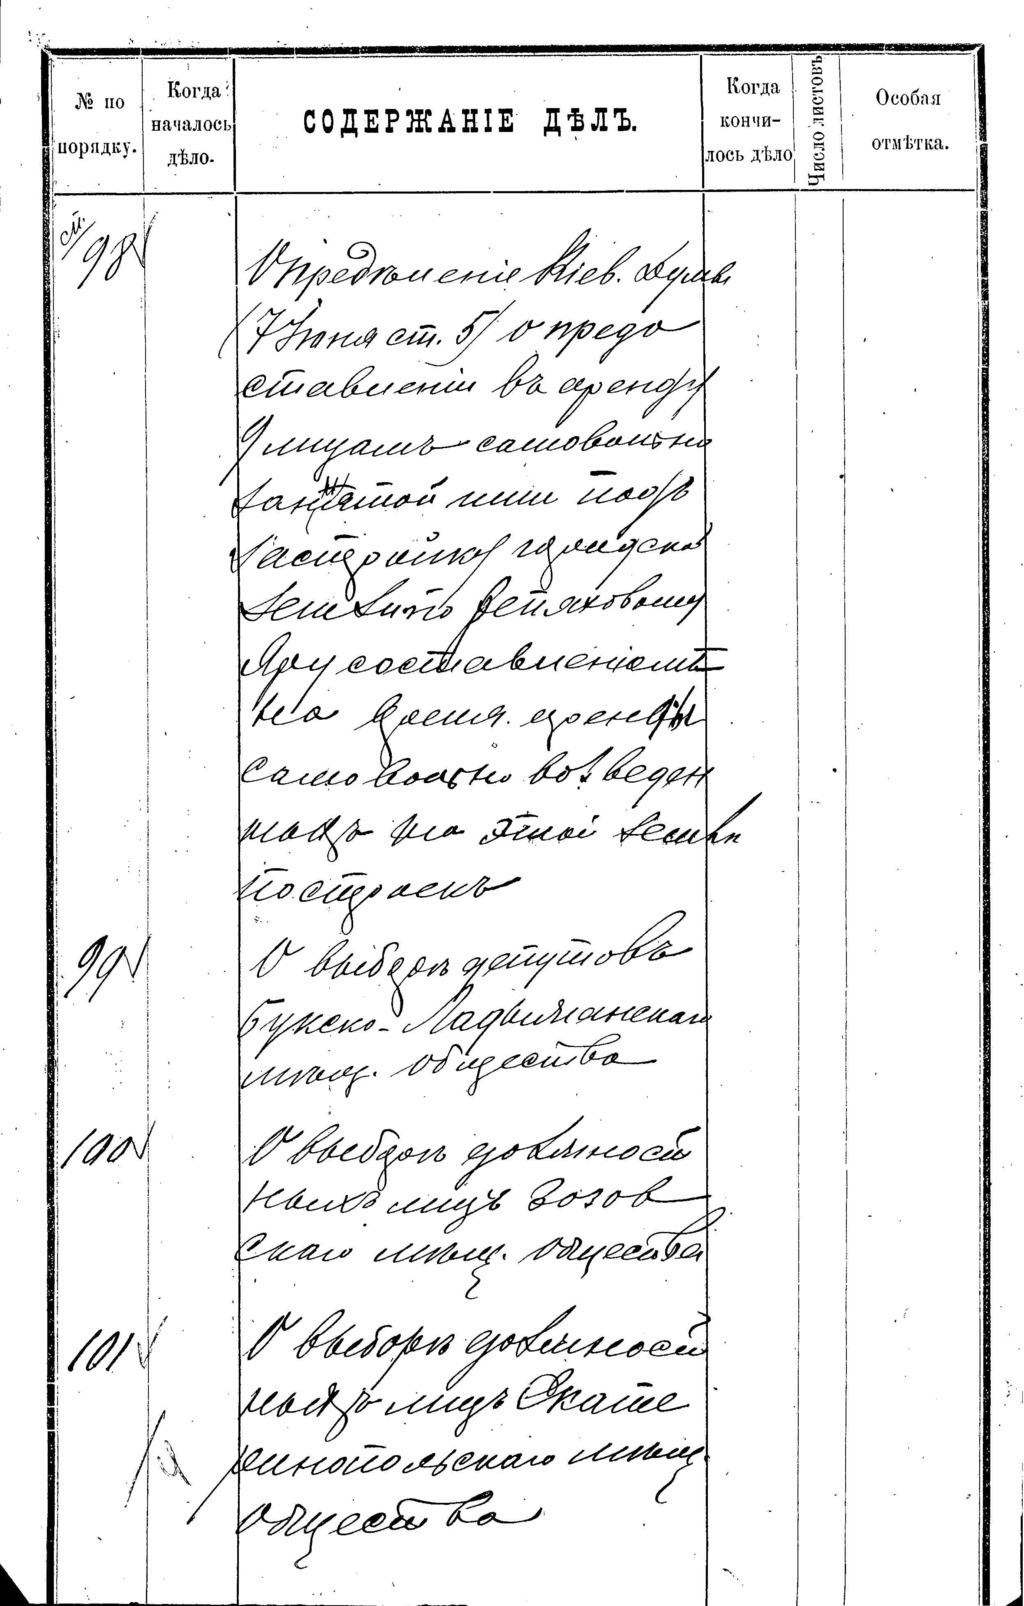 № по порядку.
Когда началось дѣло.
СОДЕРЖАНІЕ ДѢЛЪ.
Когда кончилось дѣло
Число листовъ
Особая отмѣтка.
ст. 98
Опредѣленіе Кіев. Думы
(7 Іюня ст. 5) о предо
ставленіи въ аренду
9 лицамъ самовольно
занятой ими подъ
застройку городской
земли по Репяховому
Яру с оставленіемъ
на время аренды
самовольно возведен
ныхъ на этой землѣ
построекъ
99
О выборѣ депутовъ
Букско-Ладыжанскаго
мѣщ. общества
100
О выборѣ должност
ныхъ лицъ Зозов
скаго мѣщ. общества
101
О выборѣ должност
ныхъ лицъ Екате
ринопольскаго мѣщ.
общества